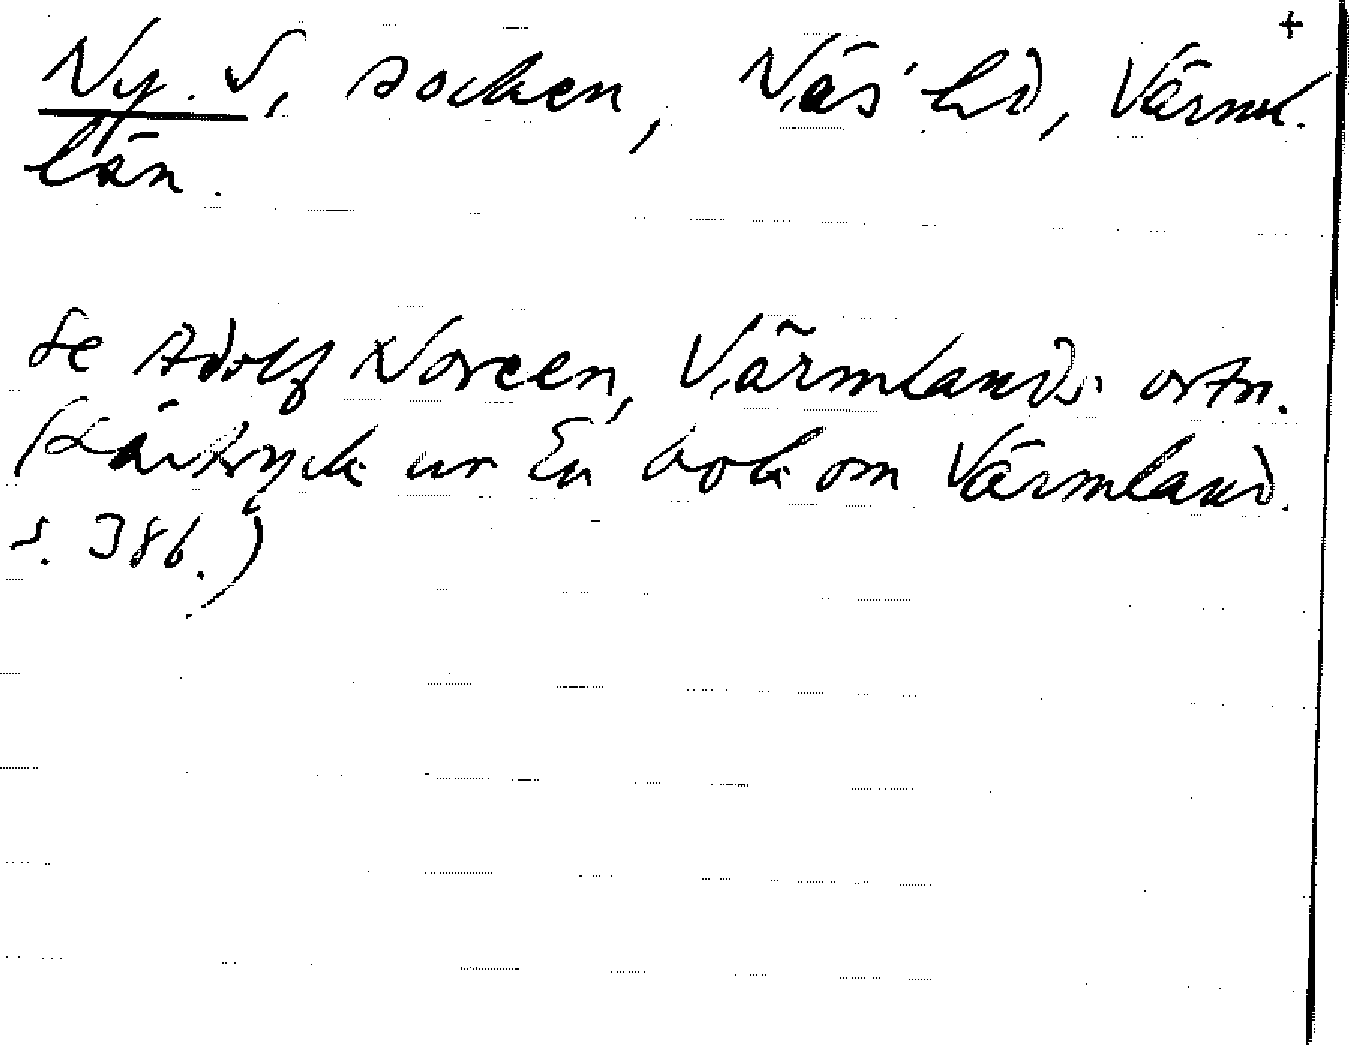 +
Ny. V, socken, Näs' hd, Värml.
län.
Se Adolf Noreen, Värmlands ortn.
(Särtryck ur En bok om Värmland.
s. 386.)